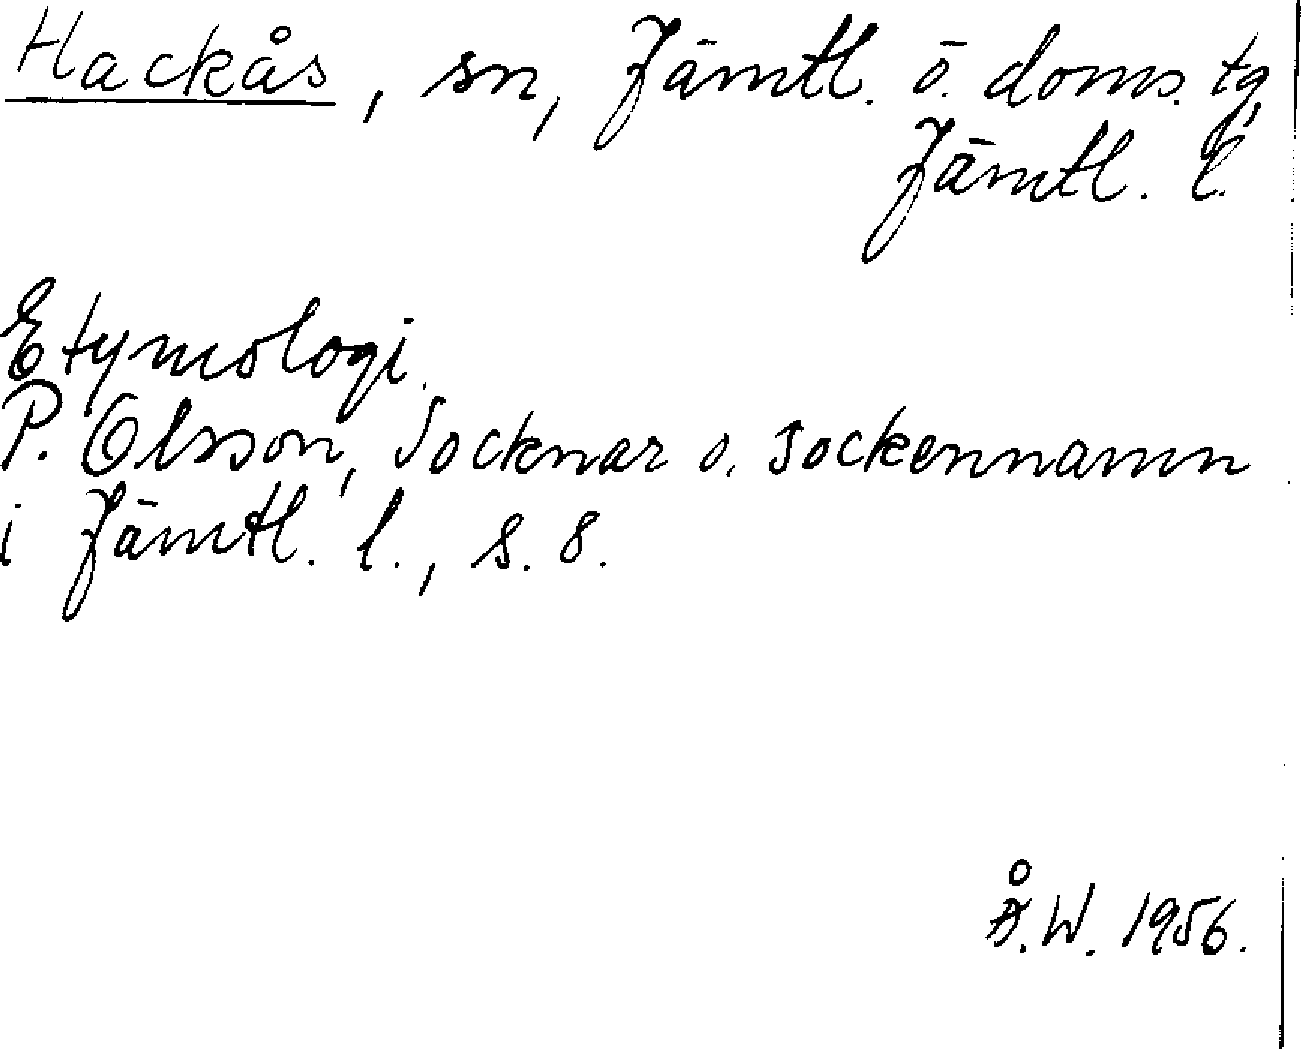 Hackås, sn, Jämtl. ö. doms. tg,
Jämtl. l.
Etymologi.
P. Olsson, Socknar o. sockennamn
i Jämtl. l., s. 8.
Å.W. 1956.